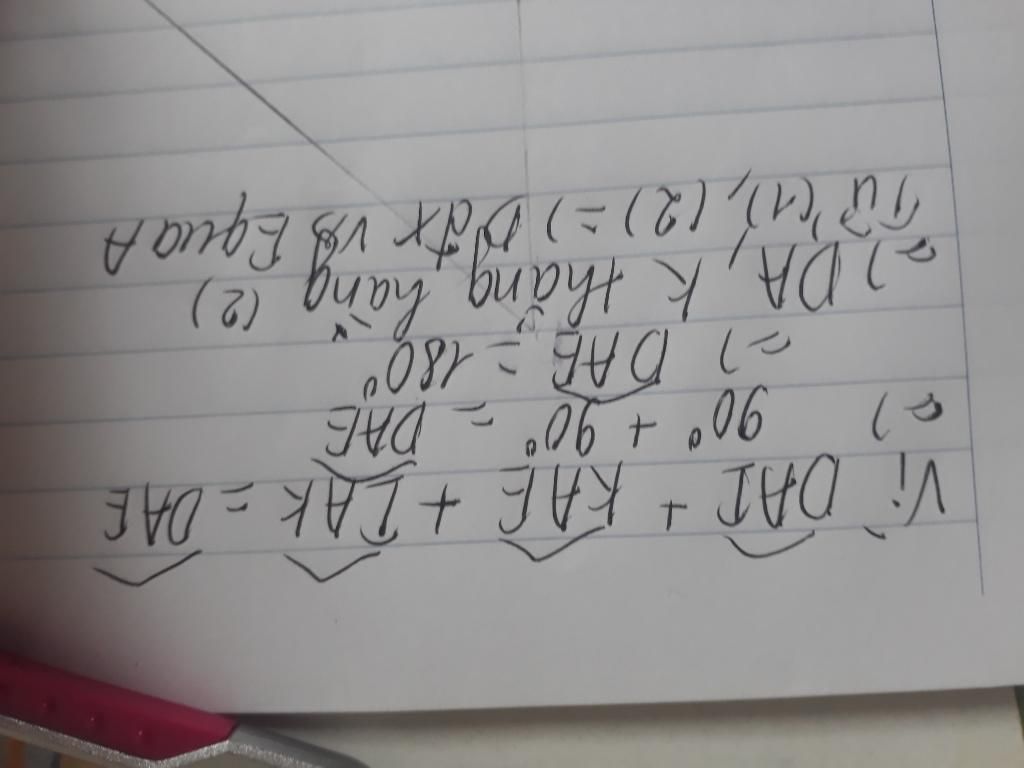 Vì DAI + KAE + IAK = DAE
=) 90° + 90° = DAE
=) DAE = 180°
=) DA, K thẳng hàng (2)
Từ (1), (2) =) D đx vs E qua A